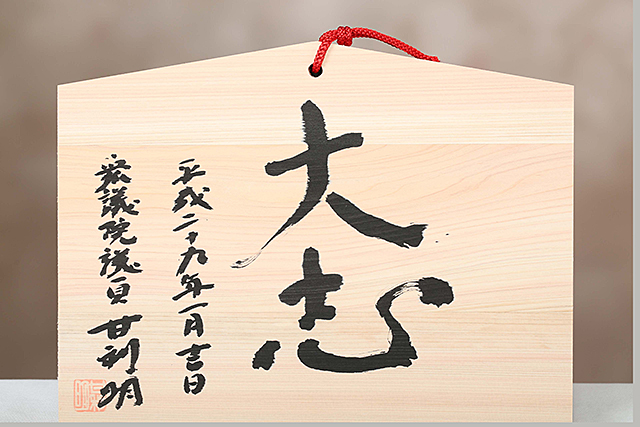 大志
平成二十九年一月吉日
衆議院議員 甘利明